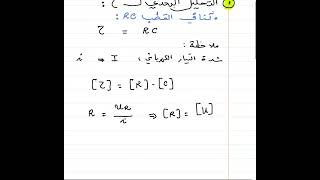 ① التحليل البعدي لـ τ :
* ثنائي القطب RC :
τ = RC
ملاحظة :
شدة التيار الكهربائي i → I
[τ] = [R] · [C]
R = u_R / i ⇒ [R] = [U]